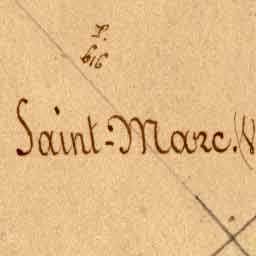 P.
616
Saint-Marc.